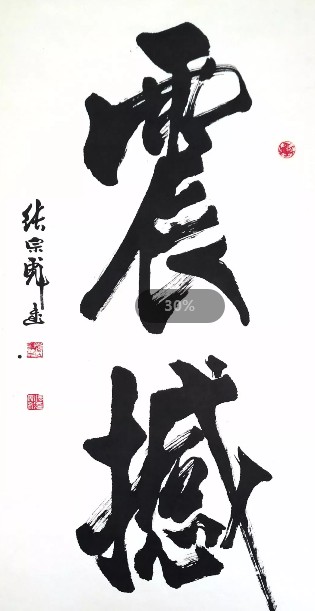 震撼
张宗彪书
30%